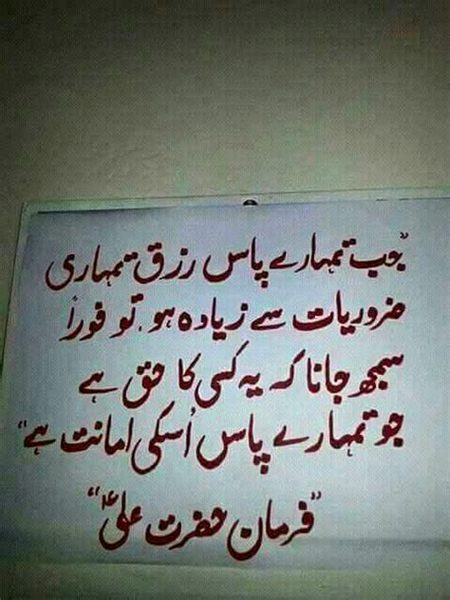 "جب تمہارے پاس رزق تمہاری
ضروریات سے زیادہ ہو۔ تو فوراً
سمجھ جانا کہ یہ کسی کا حق ہے
جو تمہارے پاس اُسکی امانت ہے"
"فرمان حضرت علیؑ"